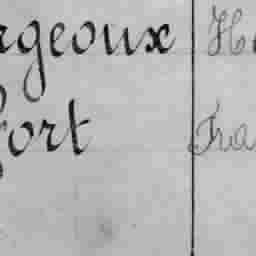 rgeoux He
fort Fra